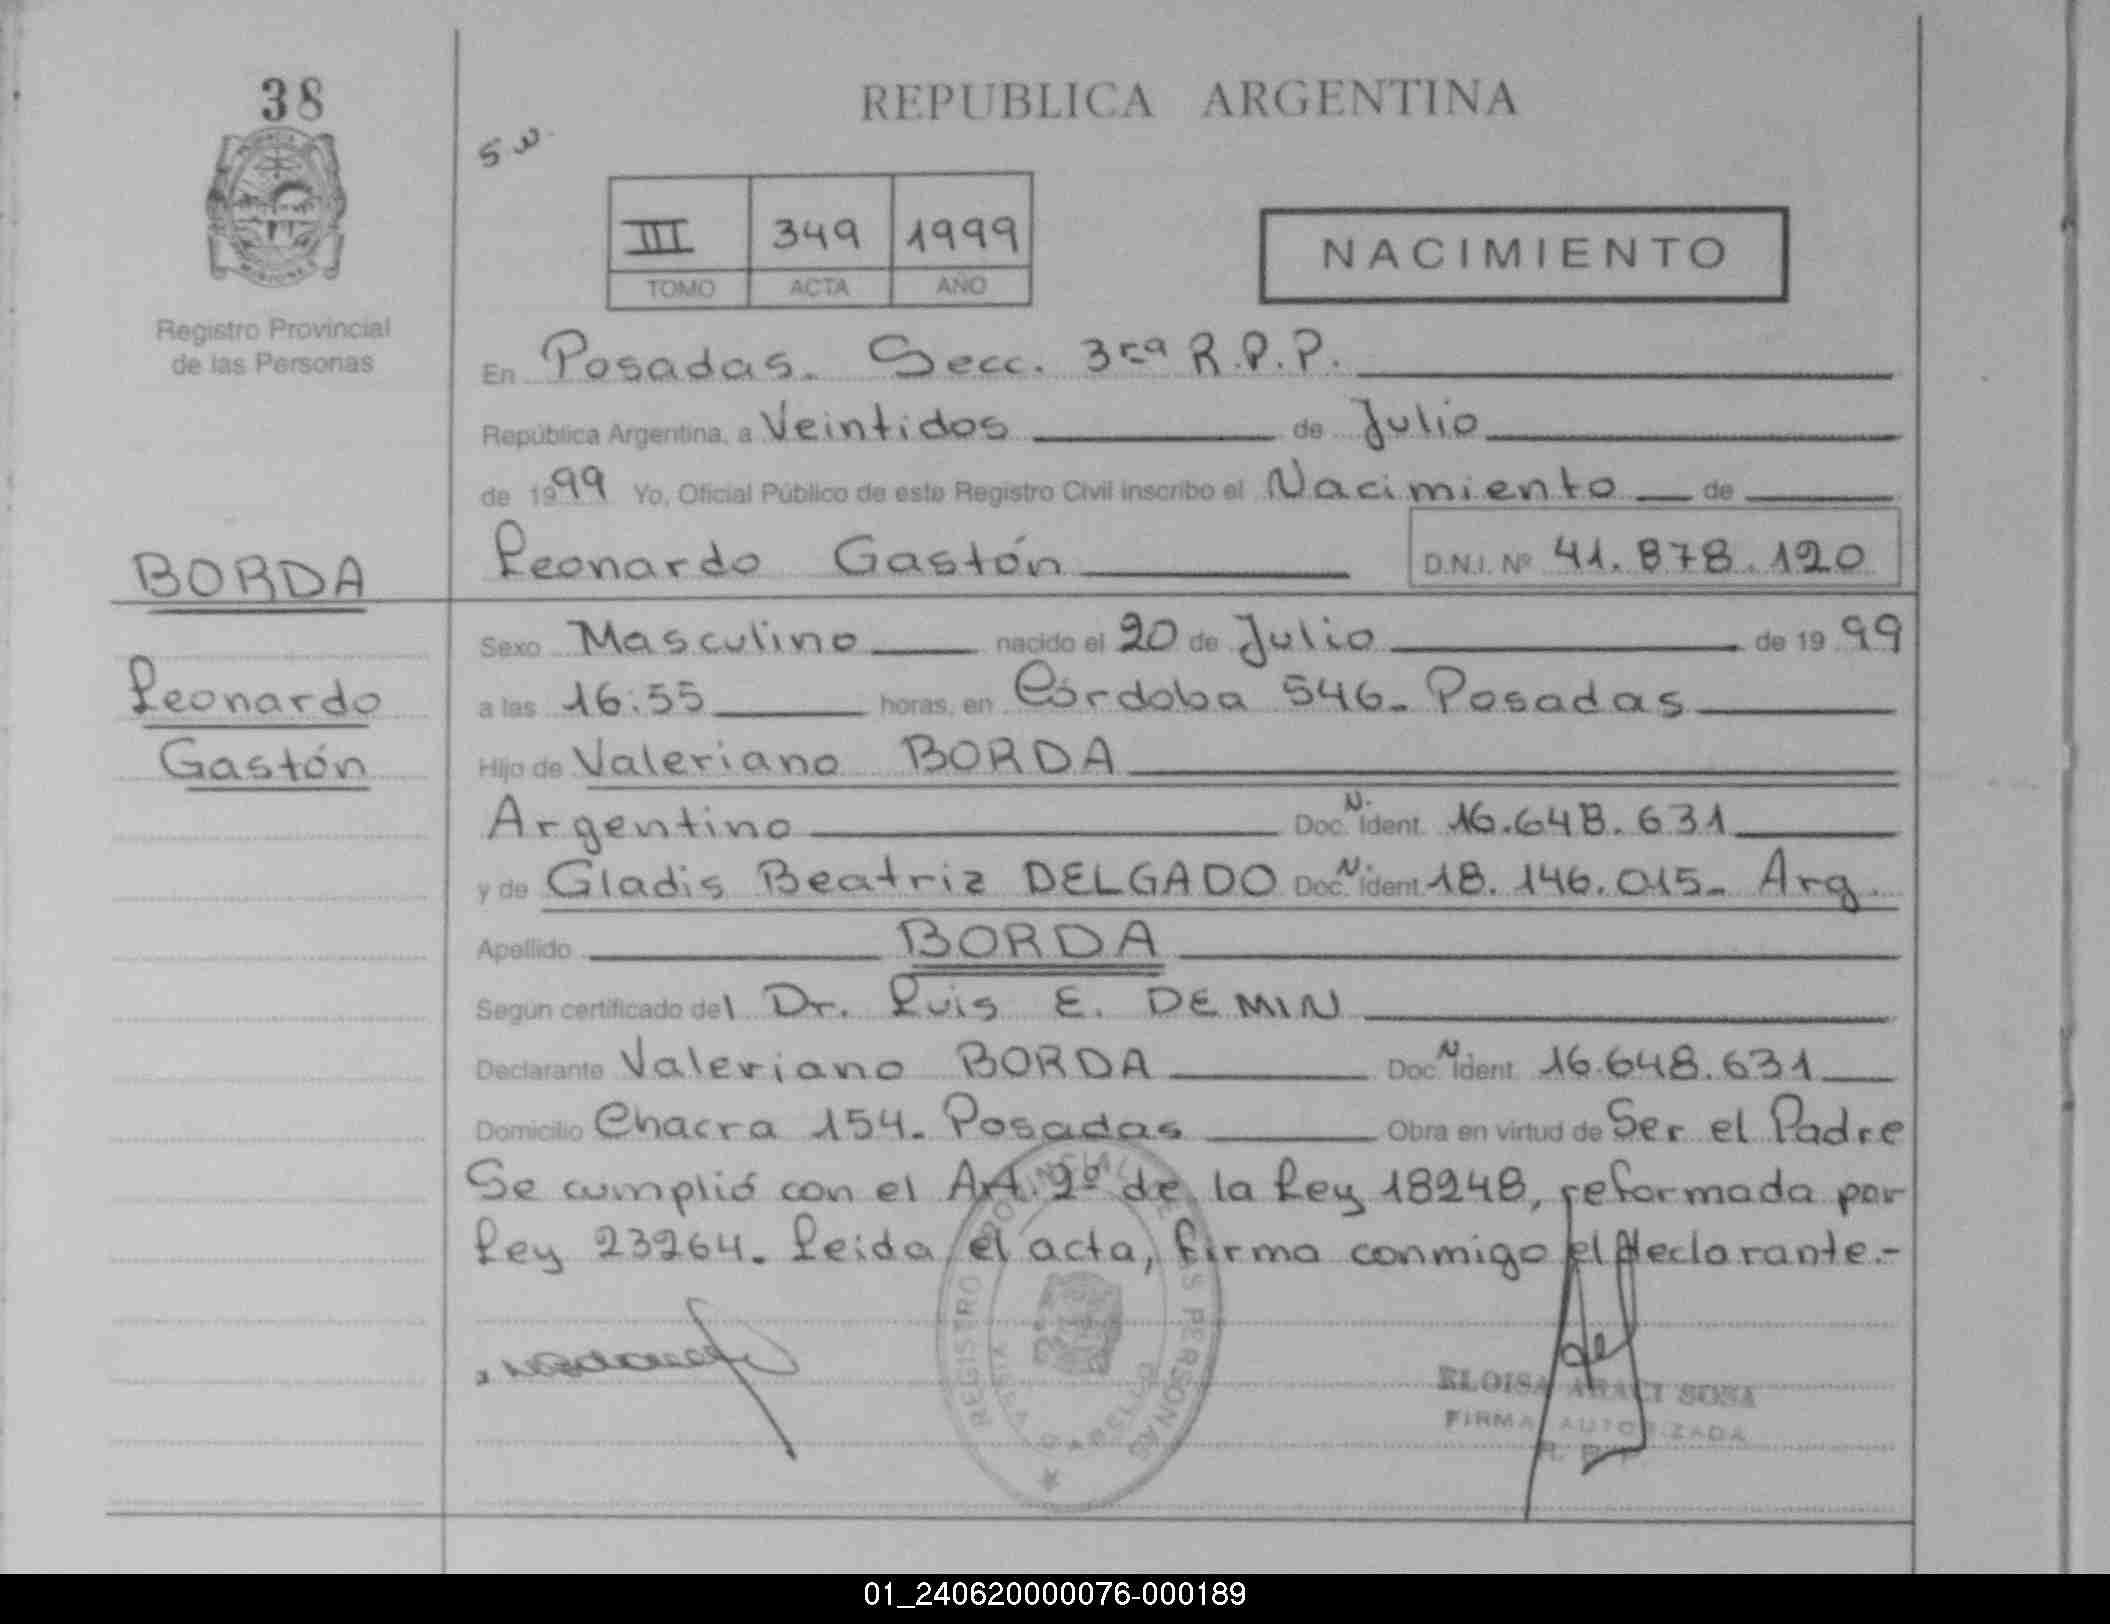 38
REPUBLICA ARGENTINA
III 349 1999
TOMO ACTA AÑO
NACIMIENTO
Registro Provincial
de las Personas
En Posadas. Secc. 3ra R.P.P.
República Argentina, a Veintidos de Julio
de 1999 Yo, Oficial Público de este Registro Civil inscribo el Nacimiento de
BORDA
Leonardo Gastón D.N.I. Nº 41.878.120
Leonardo
Gastón
Sexo Masculino nacido el 20 de Julio de 1999
a las 16:55 horas, en Córdoba 546. Posadas
Hijo de Valeriano BORDA
Argentino Doc. N. ident. 16.648.631
y de Gladis Beatriz DELGADO Doc. N. ident 18.146.015. Arg.
Apellido BORDA
Según certificado del Dr. Luis E. DEMIN
Declarante Valeriano BORDA Doc. N ident. 16.648.631
Domicilio Chacra 154. Posadas Obra en virtud de Ser el Padre
Se cumplió con el Art. 2º de la Ley 18248, reformada por
Ley 23264. Leida el acta, firma conmigo el declarante.-
REGISTRO PROVINCIAL DE LAS PERSONAS
ELOISA ARACI SOSA
FIRMA AUTORIZADA
R. P. P.
01_240620000076-000189